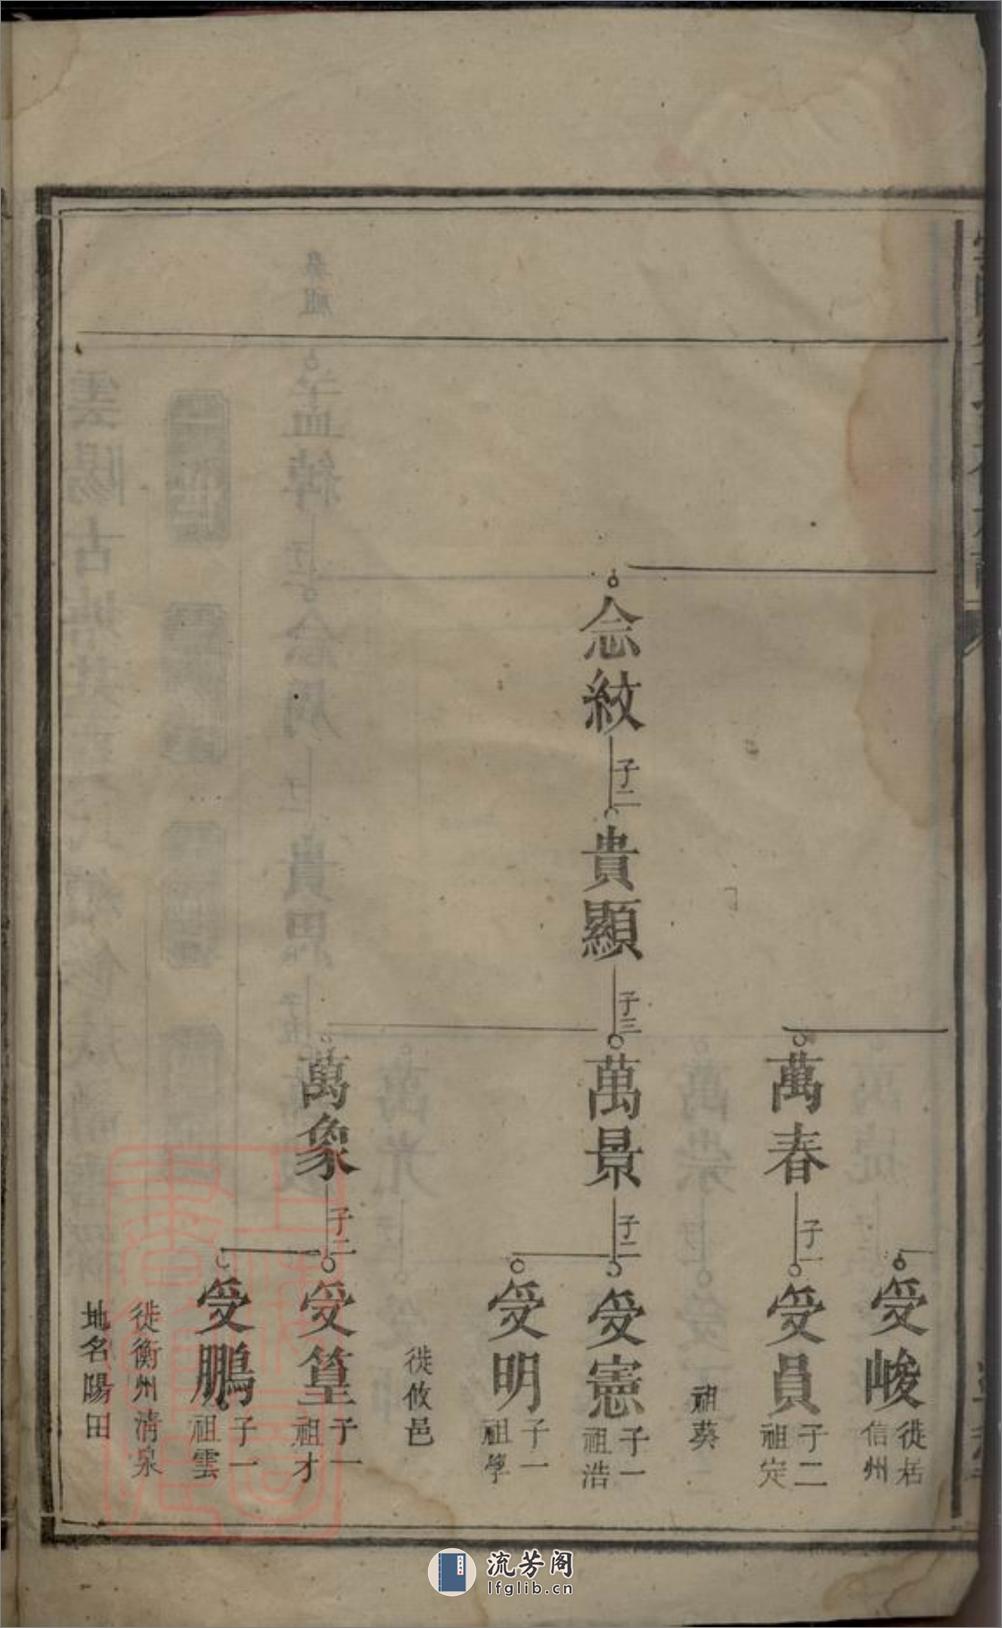 受峻
徙居
信州
萬春
子一
受員
子二
祖定
祖葵
念紋
子二
貴顯
子三
萬景
子二
受憲
子一
祖浩
受明
子一
祖學
徙攸邑
萬象
子二
受篁
子一
祖才
受鵬
子一
祖雲
徙衡州清泉
地名陽田
流芳阁
lfglib.cn